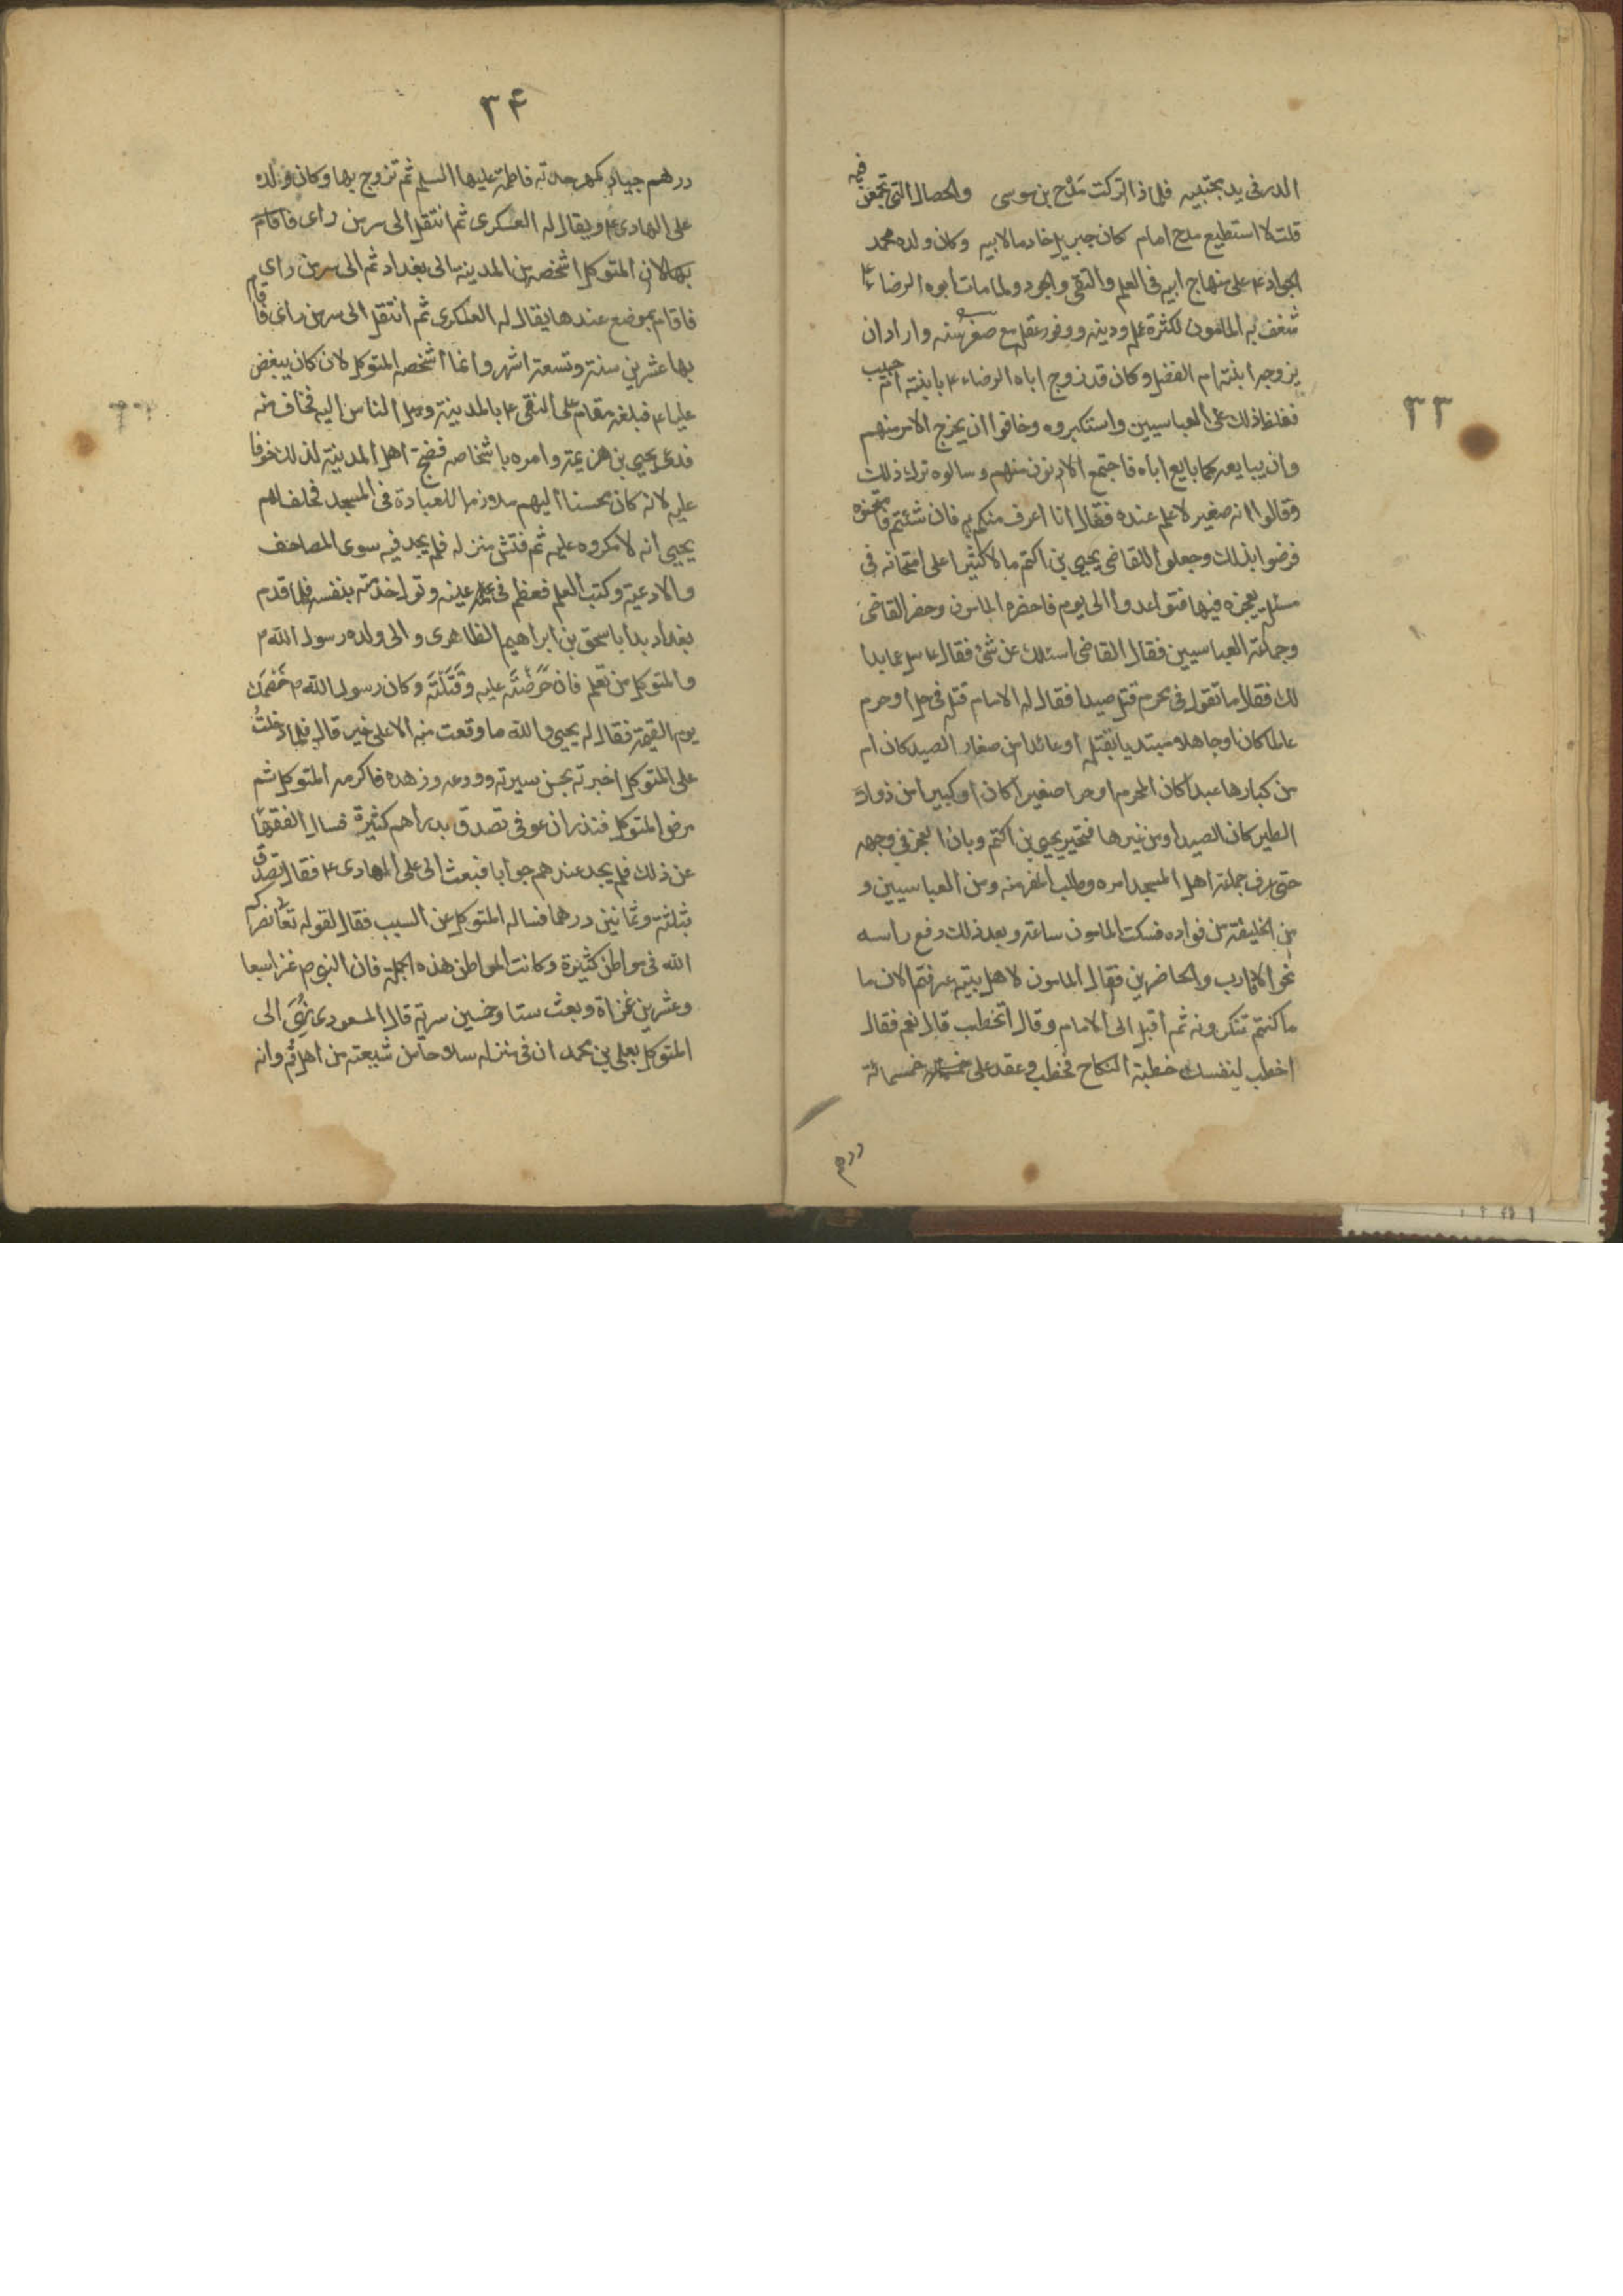 ٣٣
الدر فى يد مجتبيه فلماذا تركت مدح بن موسى والخصال التى تجمعن فيه
قلت لا استطيع مدح امام كان جبريل خادما لابيه وكان ولده محمد
الجواد ع على منهاج ابيه فى العلم والتقى والجود ولما مات ابوه الرضا ع
شغف به المامون لكثرة علمه ودينه ووفور عقله مع صغر سنه واراد ان
يزوجه ابنته ام الفضل وكان قد زوج اباه الرضاء ع بابنته ام حبيب
فغلظ ذلك على العباسيين واستكبروه وخافوا ان يخرج الامر منهم
وان يبايعه كما بايع اباه فاجتمع الادنون منهم وسالوه ترك ذلك
وقالوا انه صغير لا علم عنده فقال انا اعرف منكم به فان شئتم فامتحنوه
فرضوا بذلك وجعلوا للقاضى يحيى بن اكثم مالا كثيرا على امتحانه فى
مسئلة يعجزه فيها فتواعدوا الى يوم فاحضره المامون وحضر القاضى
وجماعة العباسيين فقال القاضى اسئلك عن شئ فقال ع سل عما بدا
لك فقال ما تقول فى محرم قتل صيدا فقال له الامام قتله فى حل او حرم
عالما كان او جاهلا مبتديا بقتله او عائدا من صغار الصيد كان ام
من كبارها عبدا كان المحرم او حرا صغيرا كان او كبيرا من ذوات
الطير كان الصيد او من غيرها فتحير يحيى بن اكثم وبان العجز فى وجهه
حتى عرف جماعة اهل المسجد امره وطلب المفر منه ومن العباسيين و
من الخليفة من فواده فسكت المامون ساعة وبعد ذلك رفع راسه
نحو الاقارب والحاضرين فقال المامون لاهل بيته عرفتم الان ما
ما كنتم تنكرونه ثم اقبل الى الامام وقال اتخطب قال نعم فقال
اخطب لنفسك خطبة النكاح فخطب وعقد على خمسمائة
درهم
٣۴
درهم جياد كمهر جدته فاطمة عليها السلم ثم تزوج بها وكان ولده
على الهادى ع ويقال له العسكرى ثم انتقل الى سر من راى فاقام
بها لان المتوكل اشخصه من المدينة الى بغداد ثم الى سر من راى
فاقام بموضع عندها يقال له العسكرى ثم انتقل الى سر من راى فاقام
بها عشرين سنة وتسعة اشهر وانما اشخصه المتوكل لانه كان يبغض
عليا ع فبلغه مقام على النقى ع بالمدينة وميل الناس اليه فخاف منه
فدعى يحيى بن هرثمة وامره باشخاصه فضج اهل المدينة لذلك خوفا
عليه لانه كان محسنا اليهم ملازما للعبادة فى المسجد فحلف لهم
يحيى انه لا مكروه عليه ثم فتش منزله فلم يجد فيه سوى المصاحف
والادعية وكتب العلم فعظم فى عينه وتولى خدمته بنفسه فلما قدم
بغداد بدا باسحق بن ابراهيم الظاهرى والى ولده رسول الله م
والمتوكل من تعلم فان حرضته عليه وقتلته وكان رسول الله م خصمك
يوم القيمة فقال له يحيى والله ما وقعت منه الا على خير قال فلما دخلت
على المتوكل اخبرته بحسن سيرته وورعه وزهده فاكرمه المتوكل ثم
مرض المتوكل فنذر ان عوفى تصدق بدراهم كثيرة فسال الفقهاء
عن ذلك فلم يجد عندهم جوابا فبعث الى على الهادى ع فقال تصدق
بثلثة وثمانين درهما فساله المتوكل عن السبب فقال لقوله تعا نصركم
الله فى مواطن كثيرة وكانت المواطن هذه الجملة فان النبى ص غزا سبعا
وعشرين غزاة وبعث ستا وخمسين سرية قال المسعودى نمى الى
المتوكل بعلى بن محمد ان فى منزله سلاحا من شيعته من اهل قم وانه